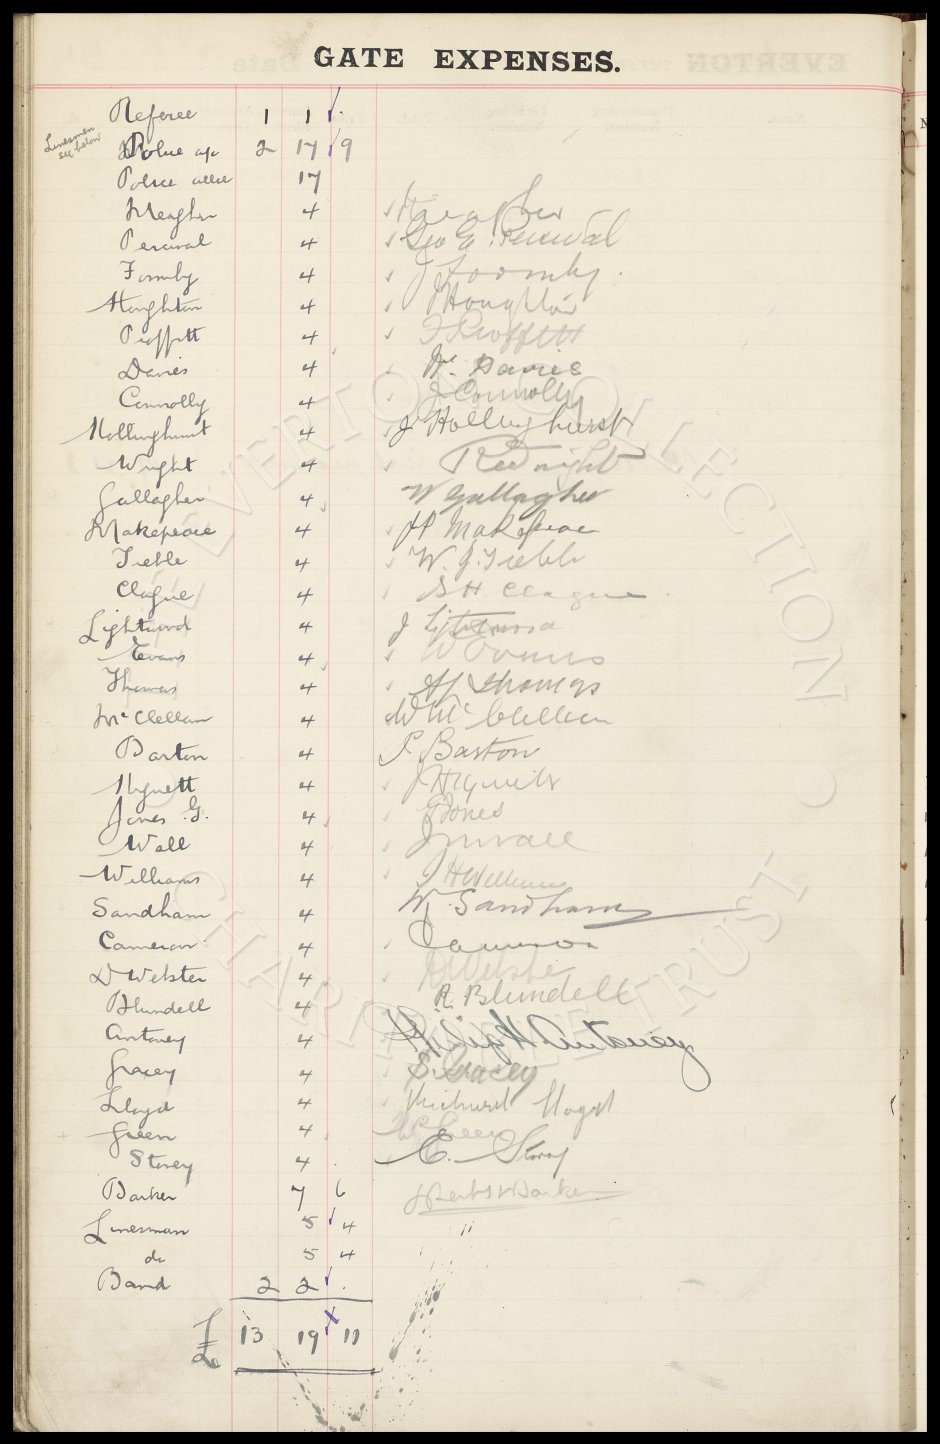 GATE EXPENSES.
Referee 1 1
Linesmen see below
Police a/c 2 17 9
Police 17
Meagher 4
Percival 4 Geo G. Percival
Formby 4 J Formby.
Houghton 4 J Houghton
Proffitt 4 Proffitt
Davies 4 Wm. Davies
Connolly 4 J Connolly
Hollinghurst 4 J Hollinghurst
Wright 4 Wright
Gallagher 4 W Gallagher
Makepeace 4 H Makepeace
Treble 4 W. J. Treble
Clague 4 S H Clague
Lightwood 4 J
Evans 4 W Evans
Thomas 4 Thomas
McClellan 4 W McClellan
Barton 4 P Barton
Hignett 4 J Hignett
Jones G. 4 G Jones
Wall 4 Wall
Williams 4 H Williams
Sandham 4 W. Sandham
Cameron 4 Cameron
D Webster 4 D Webster
Blundell 4 R. Blundell
Antoney 4 Philip H Antoney
Gracey 4 S. Gracey
Lloyd 4 Lloyd
Green 4 Green
Storey 4 E. Storey
Barker 7 6 Barker
Linesman 5 4
do 5 4
Band 2 2
£ 13 19 11
EVERTON COLLECTION CHARITABLE TRUST